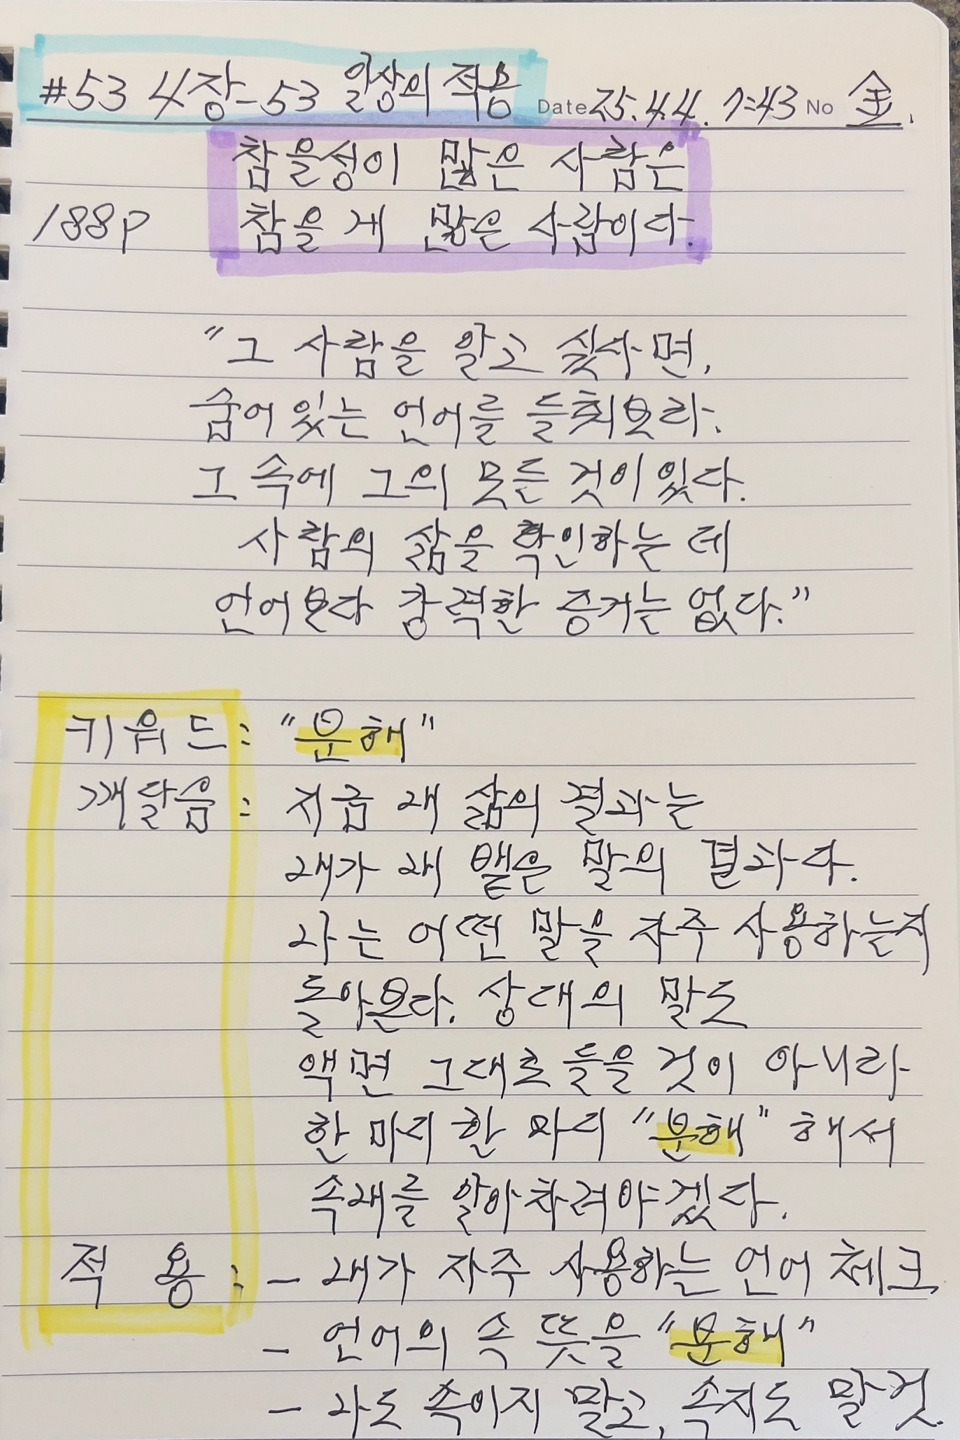 #53 4장-53 일상의 적용 Date 25.4.4. 7:43 No 金.
참을성이 많은 사람은
188P 참을 게 많은 사람이다.
"그 사람을 알고 싶다면,
숨어있는 언어를 들춰보라.
그 속에 그의 모든 것이 있다.
사람의 삶을 확인하는 데
언어보다 강력한 증거는 없다."
키워드 : "분해"
깨달음 : 지금 내 삶의 결과는
내가 내 뱉은 말의 결과다.
나는 어떤 말을 자주 사용하는지
돌아본다. 상대의 말도
액면 그대로 들을 것이 아니라
한 마디 한 마디 "분해" 해서
속내를 알아차려야겠다.
적 용 : - 내가 자주 사용하는 언어 체크
- 언어의 속 뜻을 "분해"
- 나도 속이지 말고, 속지도 말 것.